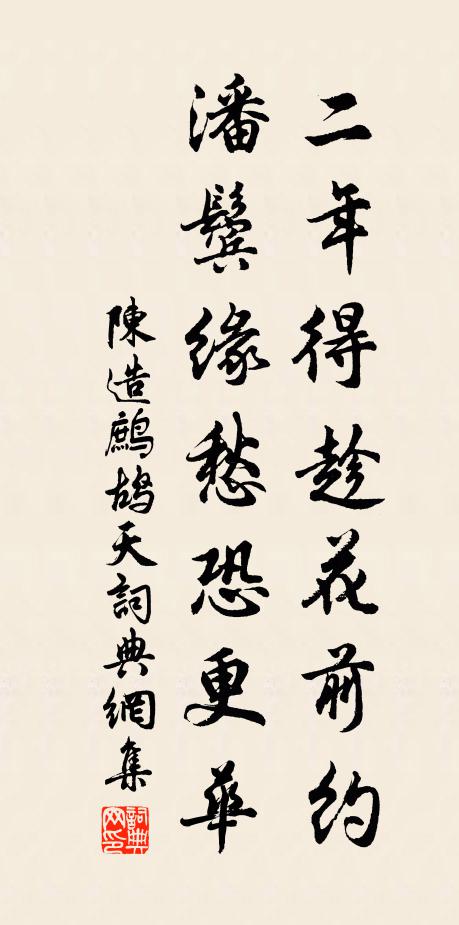 二年得趁花前約
潘鬢緣愁恐更華
陳造鷓鴣天詞典網集
詞典网印